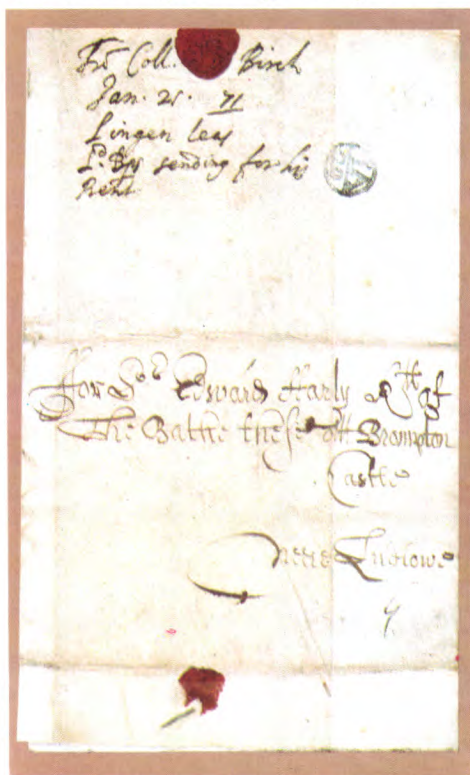 Frō Coll. Birch
Jan. 21. 71
Lingen leas
Ld. Bps sending for his
Rent
For Sr Edward Harly Kt of
The Bathe these att Brompton
Castle
neere Ludlowe